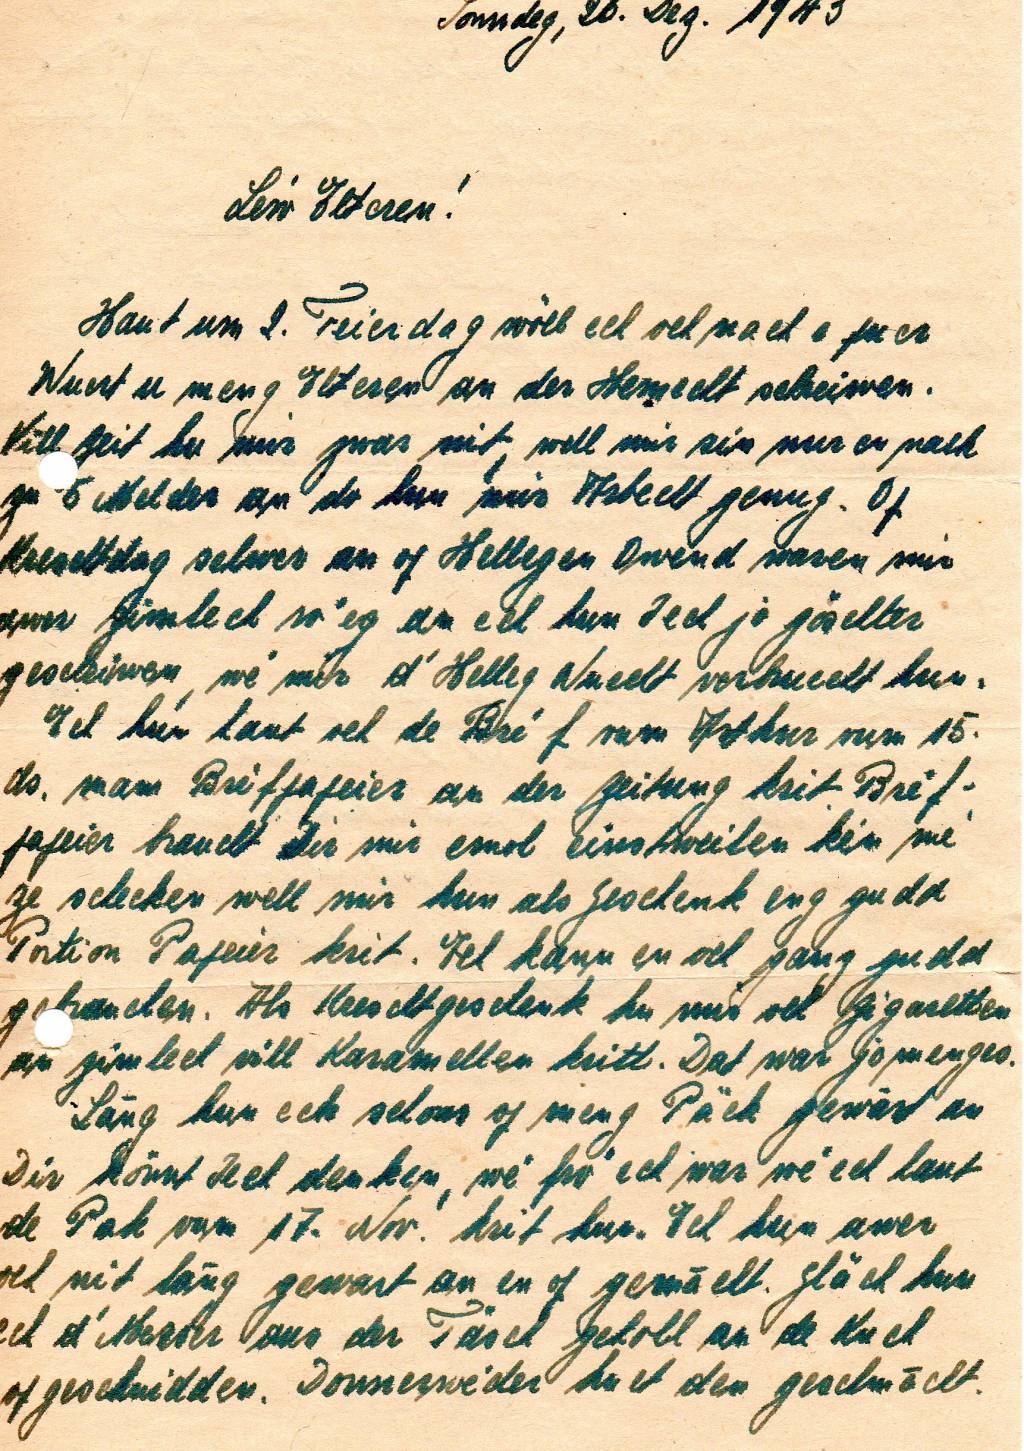 Sonndeg, 26. Dez. 1943
Léiw Elteren!
Haut um 2. Feierdag wöll ech och nach e puer
Wuert u meng Elteren an der Hemecht schreiwen.
Vill Zeit hu mir zwar nit, well mir sin nur en nach
zu 5 Melder an do hun mir Arbecht genug. Of
Kreschtdag selwer an of Hellegen Owend waren mir
awer zimlech ro'eg an ech hun Iech jo göschter
geschriwen, wé mir d'Helleg Nuecht verbruecht hun.
Ech hun haut och de Bréf vum Arthur vum 15.
ds. mam Bréfpapeier an der Zeitung krit. Bréf-
papeier braucht Dir mir emol einstweilen kén mé
ze schecken well mir hun als Geschenk eng gudd
Portion Papeier krit. Ech kann en och gang gudd
gebrauchen. Als Kreschtgeschenk hu mir och Zigaretten
an zimlech vill Karamellen kritt. Dat war jo menges.
Läng hun ech schons of meng Päck gewárt an
Dir könnt Iech denken, wé fro' ech war wé ech haut
de Pak vum 17. Nov. krit hun. Ech hun awer
och nit läng gewart an en of gemächt. Gläch hun
ech d'Messer aus der Täsch geholl an de Kuch
ofgeschnidden. Donnerwéder huet den geschmācht.